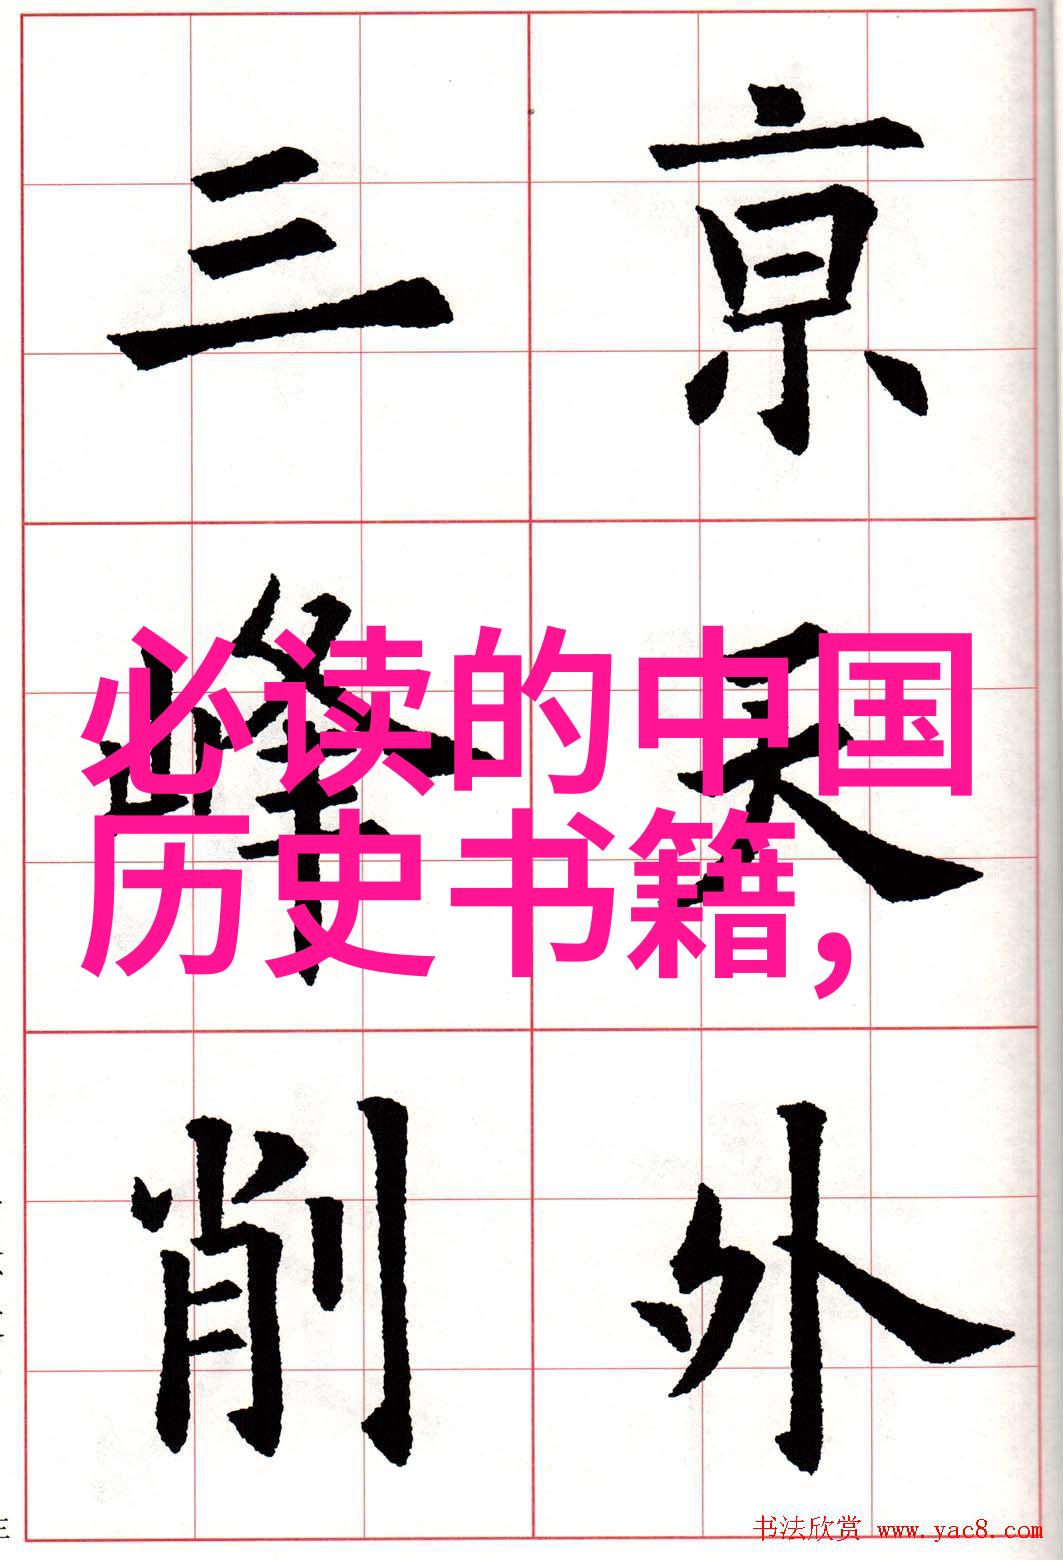 亰天外
三峰削
必读的中国
历史书籍，
书法欣赏 www.yac8.com